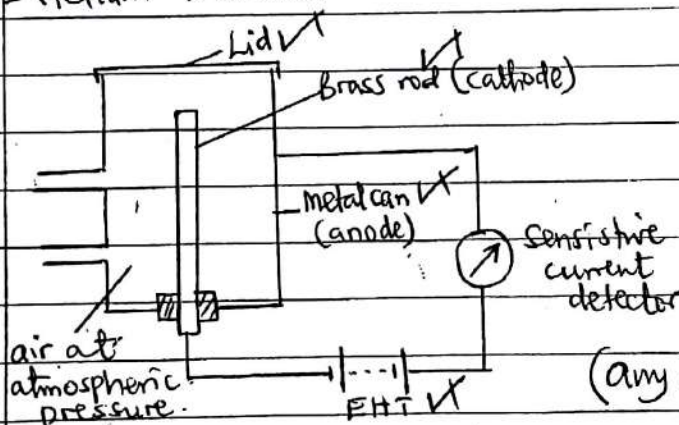 Lid
Brass rod (cathode)
metal can
(anode)
Sensistive
current
detector
air at
atmospheric
pressure.
EHT
(any